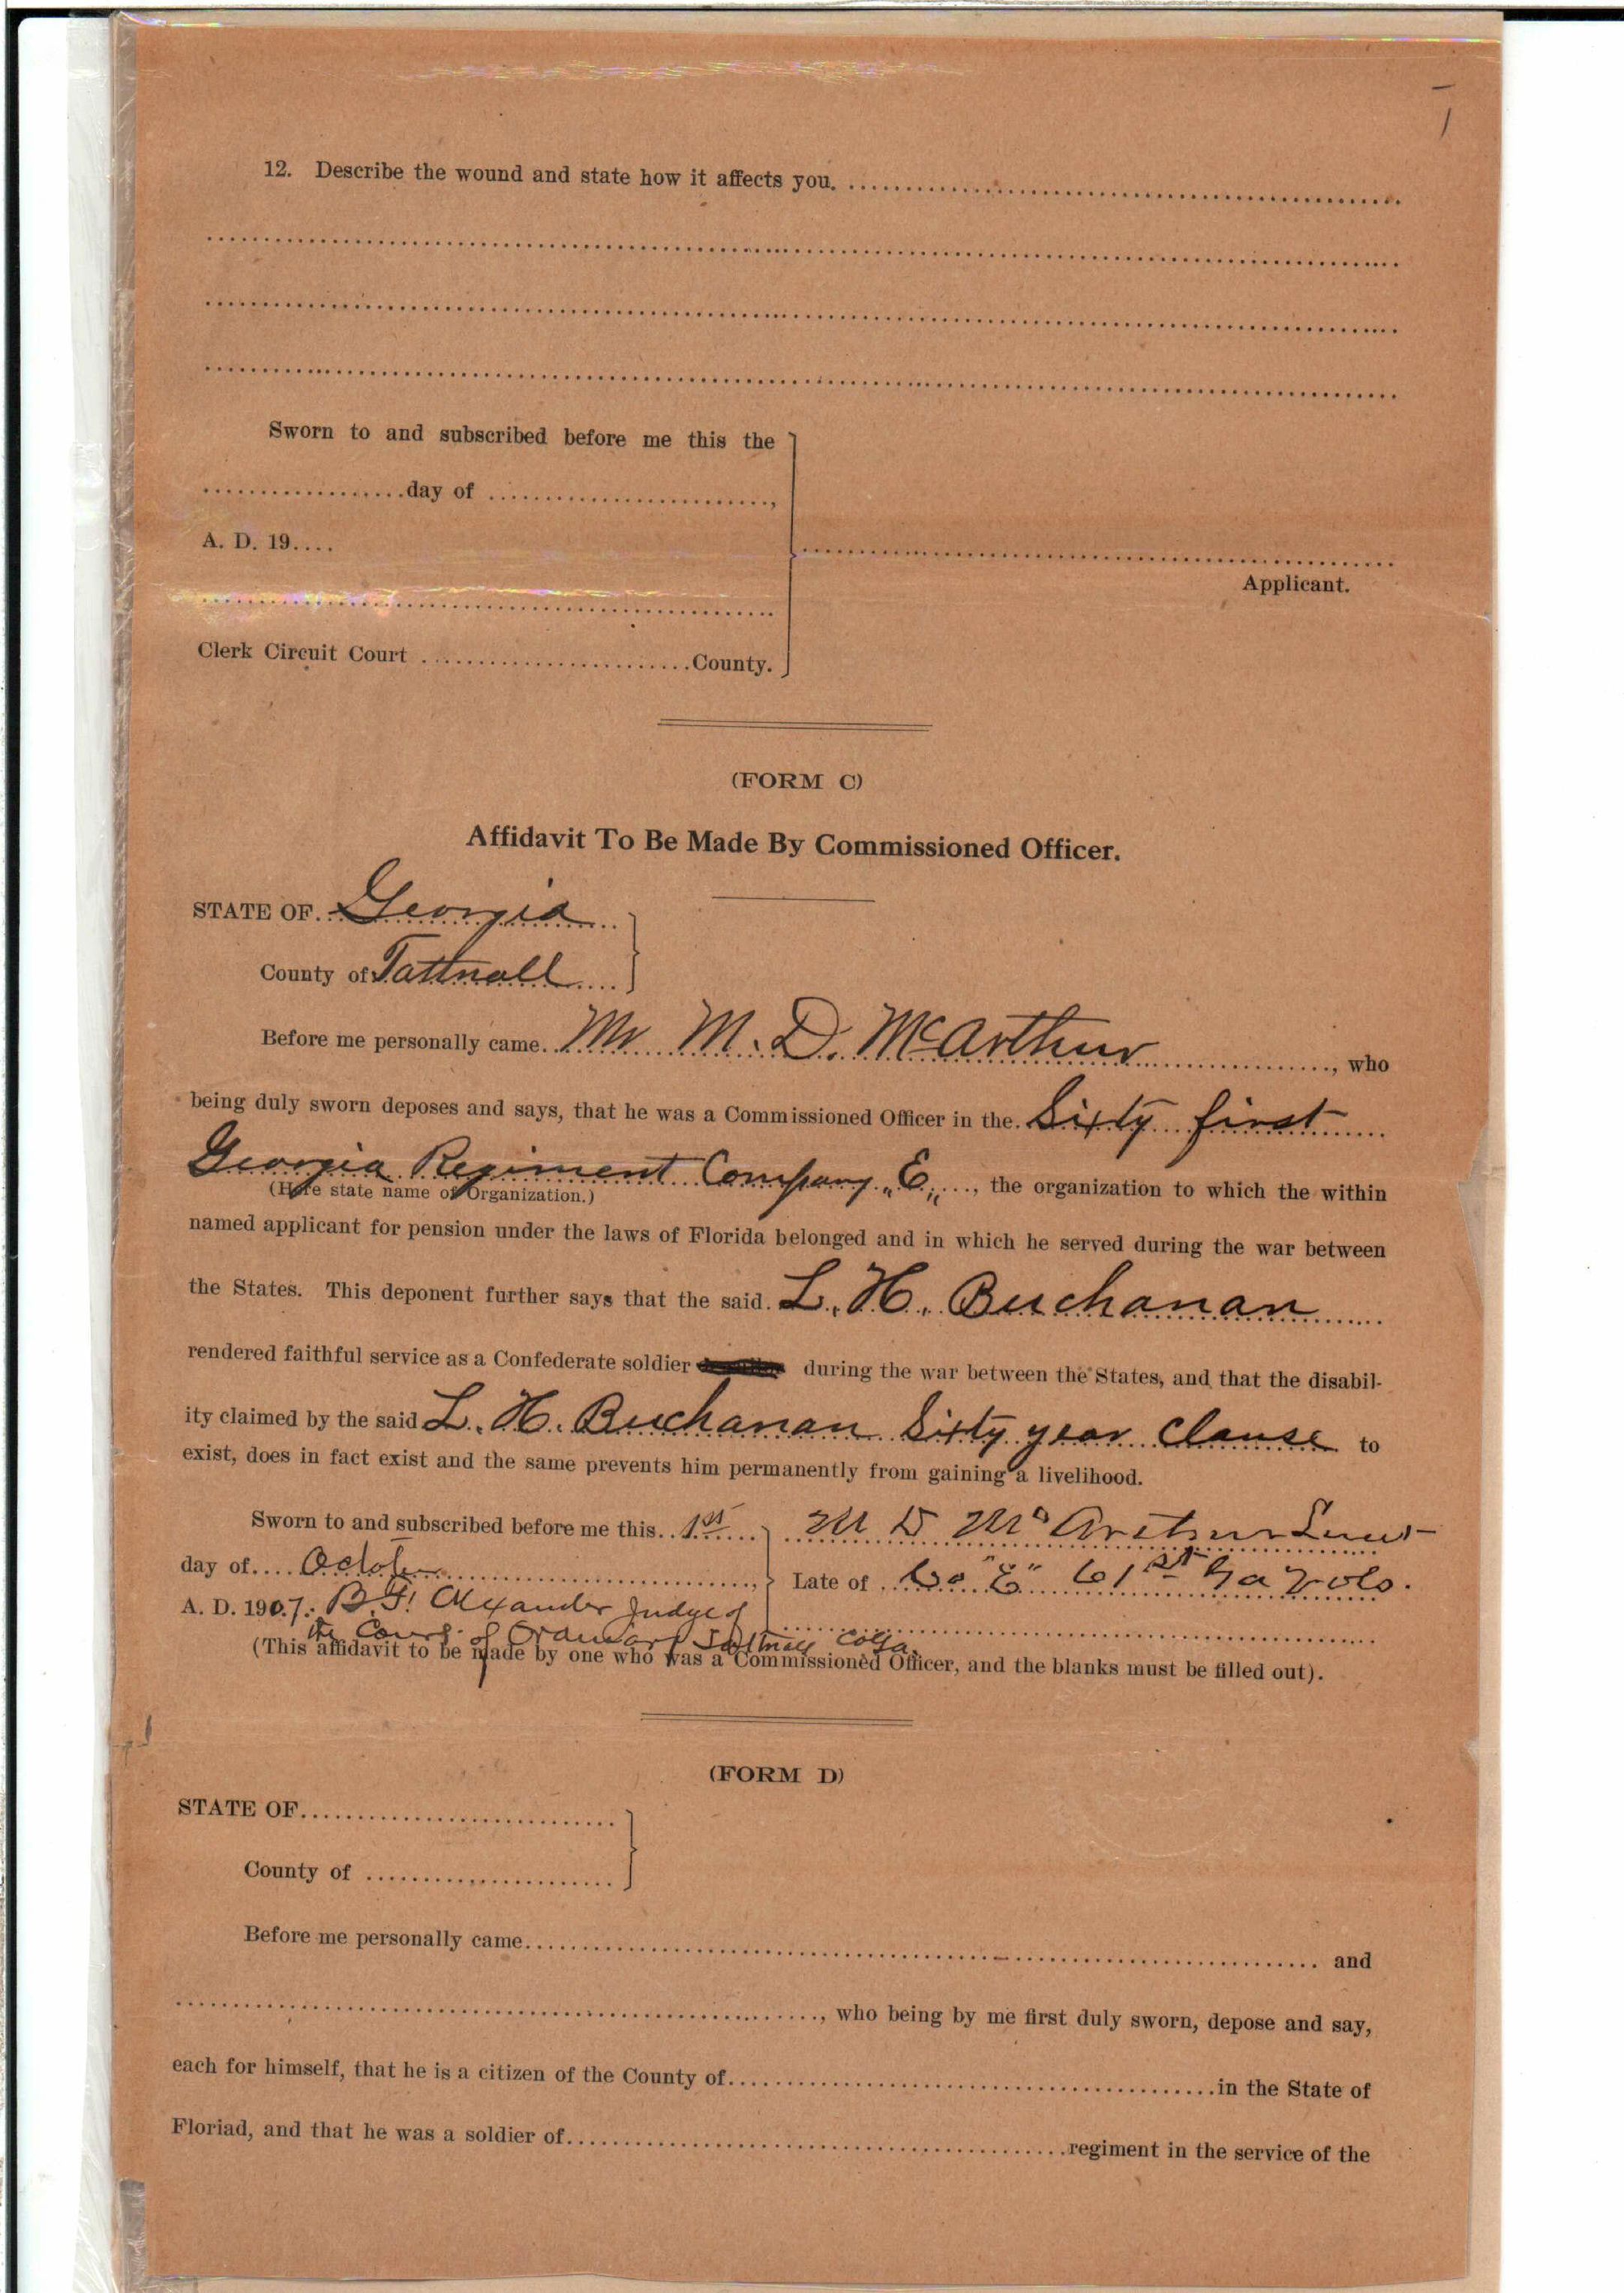 12. Describe the wound and state how it affects you. ........................................
........................................
........................................
........................................
Sworn to and subscribed before me this the
....................day of ..........................,
A. D. 19....
........................................
Applicant.
........................................
Clerk Circuit Court ..........................County.
(FORM C)
Affidavit To Be Made By Commissioned Officer.
STATE OF Georgia
County of Tattnall
Before me personally came. Mr M. D. McArthur, who
being duly sworn deposes and says, that he was a Commissioned Officer in the. Sixty first
Georgia Regiment Company "E", the organization to which the within
(Here state name of Organization.)
named applicant for pension under the laws of Florida belonged and in which he served during the war between
the States. This deponent further says that the said. L. H. Buchanan
rendered faithful service as a Confederate soldier during the war between the States, and that the disabil-
ity claimed by the said L. H. Buchanan Sixty year Clause to
exist, does in fact exist and the same prevents him permanently from gaining a livelihood.
Sworn to and subscribed before me this.. 1st M D McArthur Lieut
day of.... October, Late of Co "E" 61st Ga Vols.
A. D. 1907. B. F. Alexander Judge of
the Court of Ordinary Tattnall Co Ga.
(This affidavit to be made by one who was a Commissioned Officer, and the blanks must be filled out).
(FORM D)
STATE OF..............................
County of ........................
Before me personally came........................................ and
........................................, who being by me first duly sworn, depose and say,
each for himself, that he is a citizen of the County of........................................in the State of
Floriad, and that he was a soldier of........................................regiment in the service of the